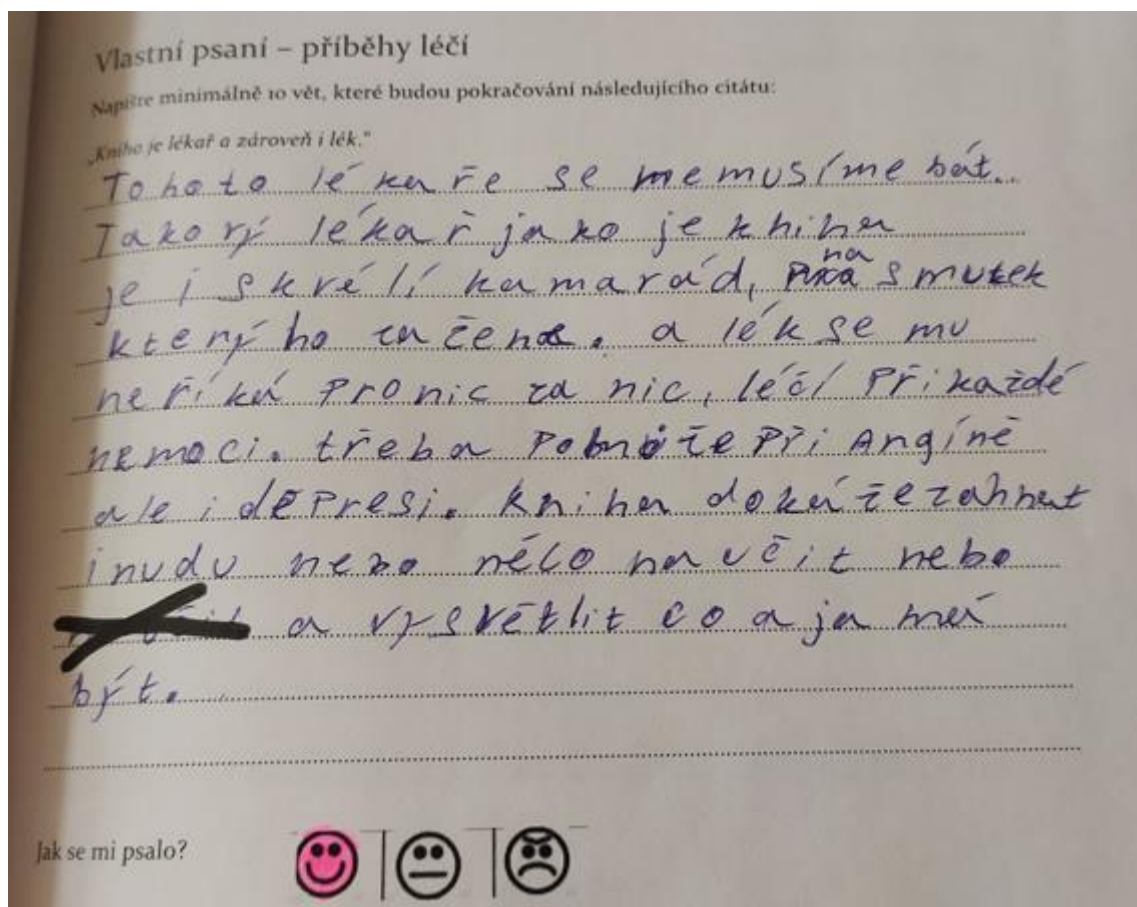 Vlastní psaní – příběhy léčí
Napište minimálně 10 vět, které budou pokračování následujícího citátu:
„Kniha je lékař a zároveň i lék."
Tohoto lékaře se nemusíme bát.
Takový lékař jako je kniha
je i skvělí kamarád, na smutek
který ho zažene. a lék se mu
neříká pro nic za nic, léčí při každé
nemoci. třeba pomůže při Angíně
ale i děpresi. kniha dokáže zahnat
i nudu nebo něco naučit nebo
a vysvětlit co a ja má
být.
Jak se mi psalo?